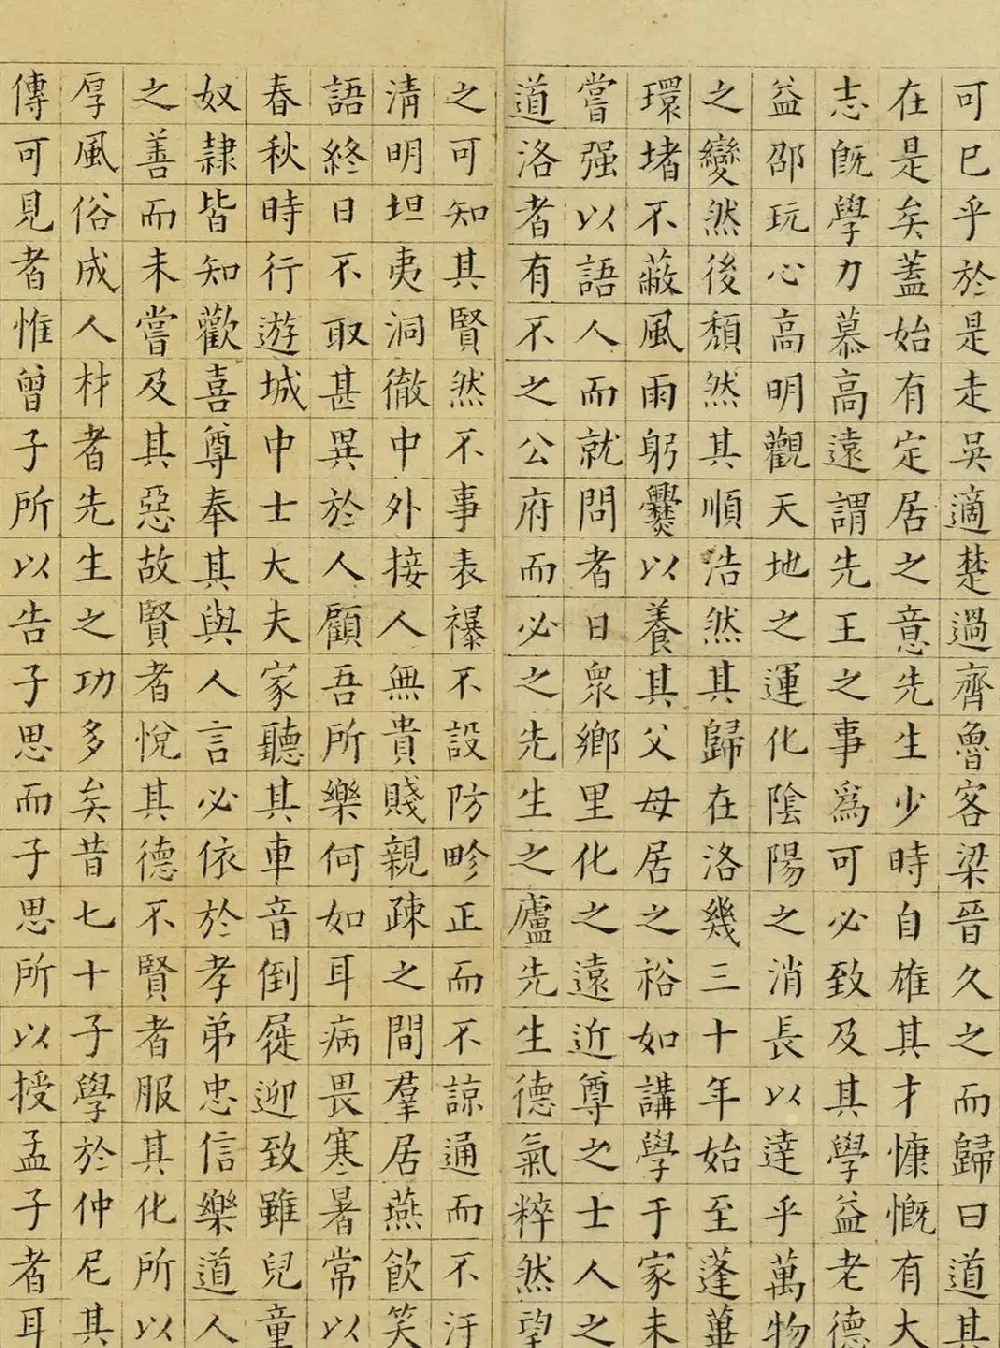 可已乎於是走吳適楚過齊魯客梁晉久之而歸曰道其
在是矣蓋始有定居之意先生少時自雄其才慷慨有大
志既學力慕高遠謂先王之事爲可必致及其學益老德
益邵玩心高明觀天地之運化陰陽之消長以達乎萬物
之變然後頹然其順浩然其歸在洛幾三十年始至蓬蓽
環堵不蔽風雨躬爨以養其父母居之裕如講學于家未
嘗强以語人而就問者日衆鄉里化之遠近尊之士人之
道洛者有不之公府而必之先生之廬先生德氣粹然望
之可知其賢然不事表襮不設防畛正而不諒通而不汙
清明坦夷洞徹中外接人無貴賤親疎之間羣居燕飲笑
語終日不取甚異於人顧吾所樂何如耳病畏寒暑常以
春秋時行遊城中士大夫家聽其車音倒屣迎致雖兒童
奴隸皆知歡喜尊奉其與人言必依於孝弟忠信樂道人
之善而未嘗及其惡故賢者悅其德不賢者服其化所以
厚風俗成人材者先生之功多矣昔七十子學於仲尼其
傳可見者惟曾子所以告子思而子思所以授孟子者耳